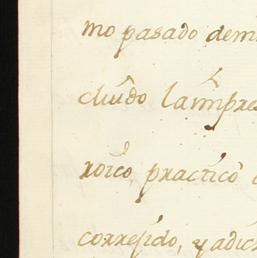 mo pasado dem
cluido la impre
rorco practico
corregido, y adic